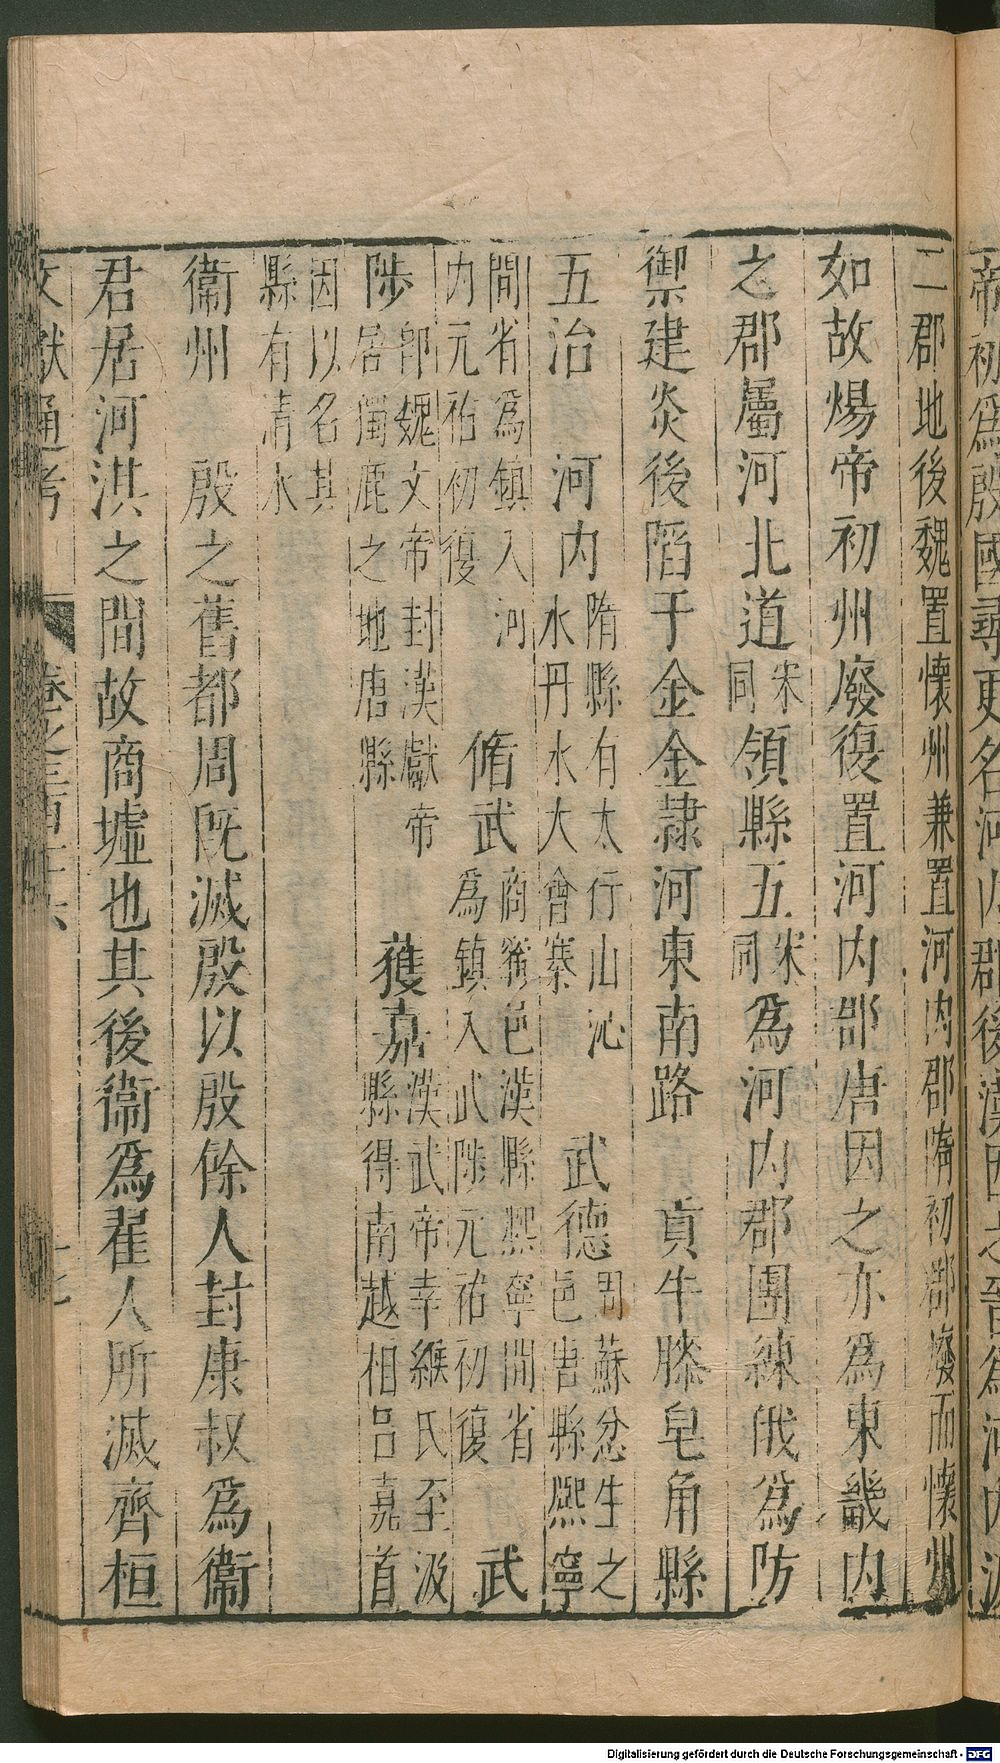 二郡地後魏置懷州兼置河內郡隋初郡廢而懷州
如故煬帝初州廢復置河內郡唐因之亦為東畿內
之郡屬河北道宋同領縣五宋同為河內郡團練俄為防
禦建炎後陷于金金隷河東南路　貢牛膝皂角縣
五治　河內隋縣有太行山沁水丹水大會寨　武德周蘇忿生之邑唐縣熙寧
間省為鎮入河內元祐初復　脩武商甯邑漢縣熙寧間省為鎮入武陟元祐初復　武
陟卽魏文帝封漢獻帝居濁鹿之地唐縣　獲嘉漢武帝幸緱氏至汲縣得南越相呂嘉首
因以名其縣有清水
衞州　殷之舊都周旣滅殷以殷餘人封康叔為衞
君居河淇之間故商墟也其後衞為翟人所滅齊桓
文獻通考　卷之三百十六
帝初為殷國尋更名河內郡後漢因之晉為河內汲
Digitalisierung gefördert durch die Deutsche Forschungsgemeinschaft - DFG